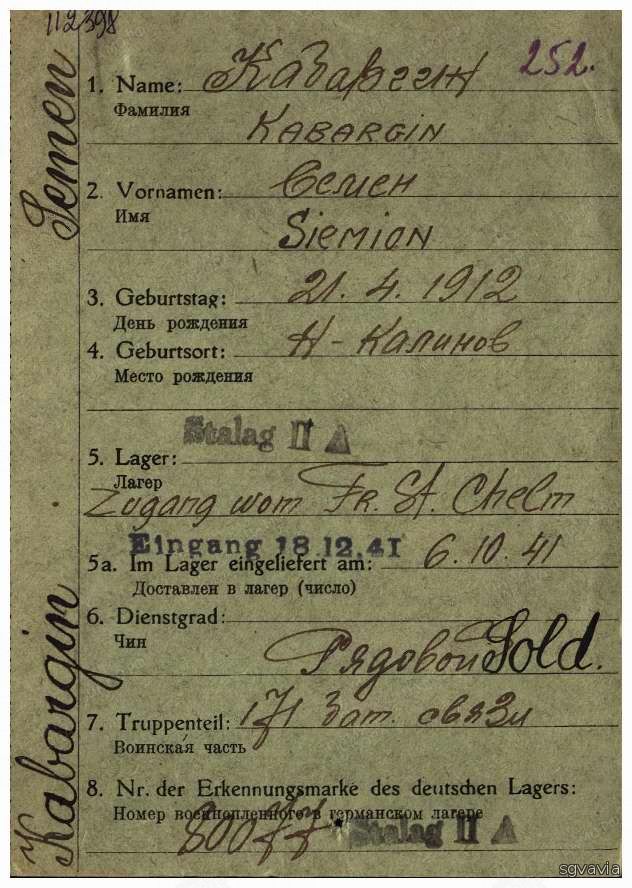 112398
252.
Semen
Kabargin
1. Name: Кабаргин
Фамилия
KABARGIN
2. Vornamen: Семен
Имя
SIEMION
3. Geburtstag: 21. 4. 1912
День рождения
4. Geburtsort: Н-Калинов
Место рождения
Stalag II A
5. Lager:
Лагер
Zugang wom Fr. St. Chelm
Eingang 18.12.41
5a. Im Lager eingeliefert am: 6. 10. 41
Доставлен в лагер (число)
6. Dienstgrad:
Чин
Рядовой Sold.
7. Truppenteil: 171 бат. связи
Воинская часть
8. Nr. der Erkennungsmarke des deutschen Lagers:
Номер военнопленного в германском лагере
80077 Stalag II A
sgvavia